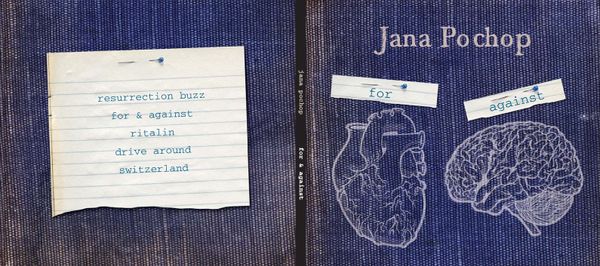 resurrection buzz
for & against
ritalin
drive around
switzerland
jana pochop
for & against
Jana Pochop
for
against